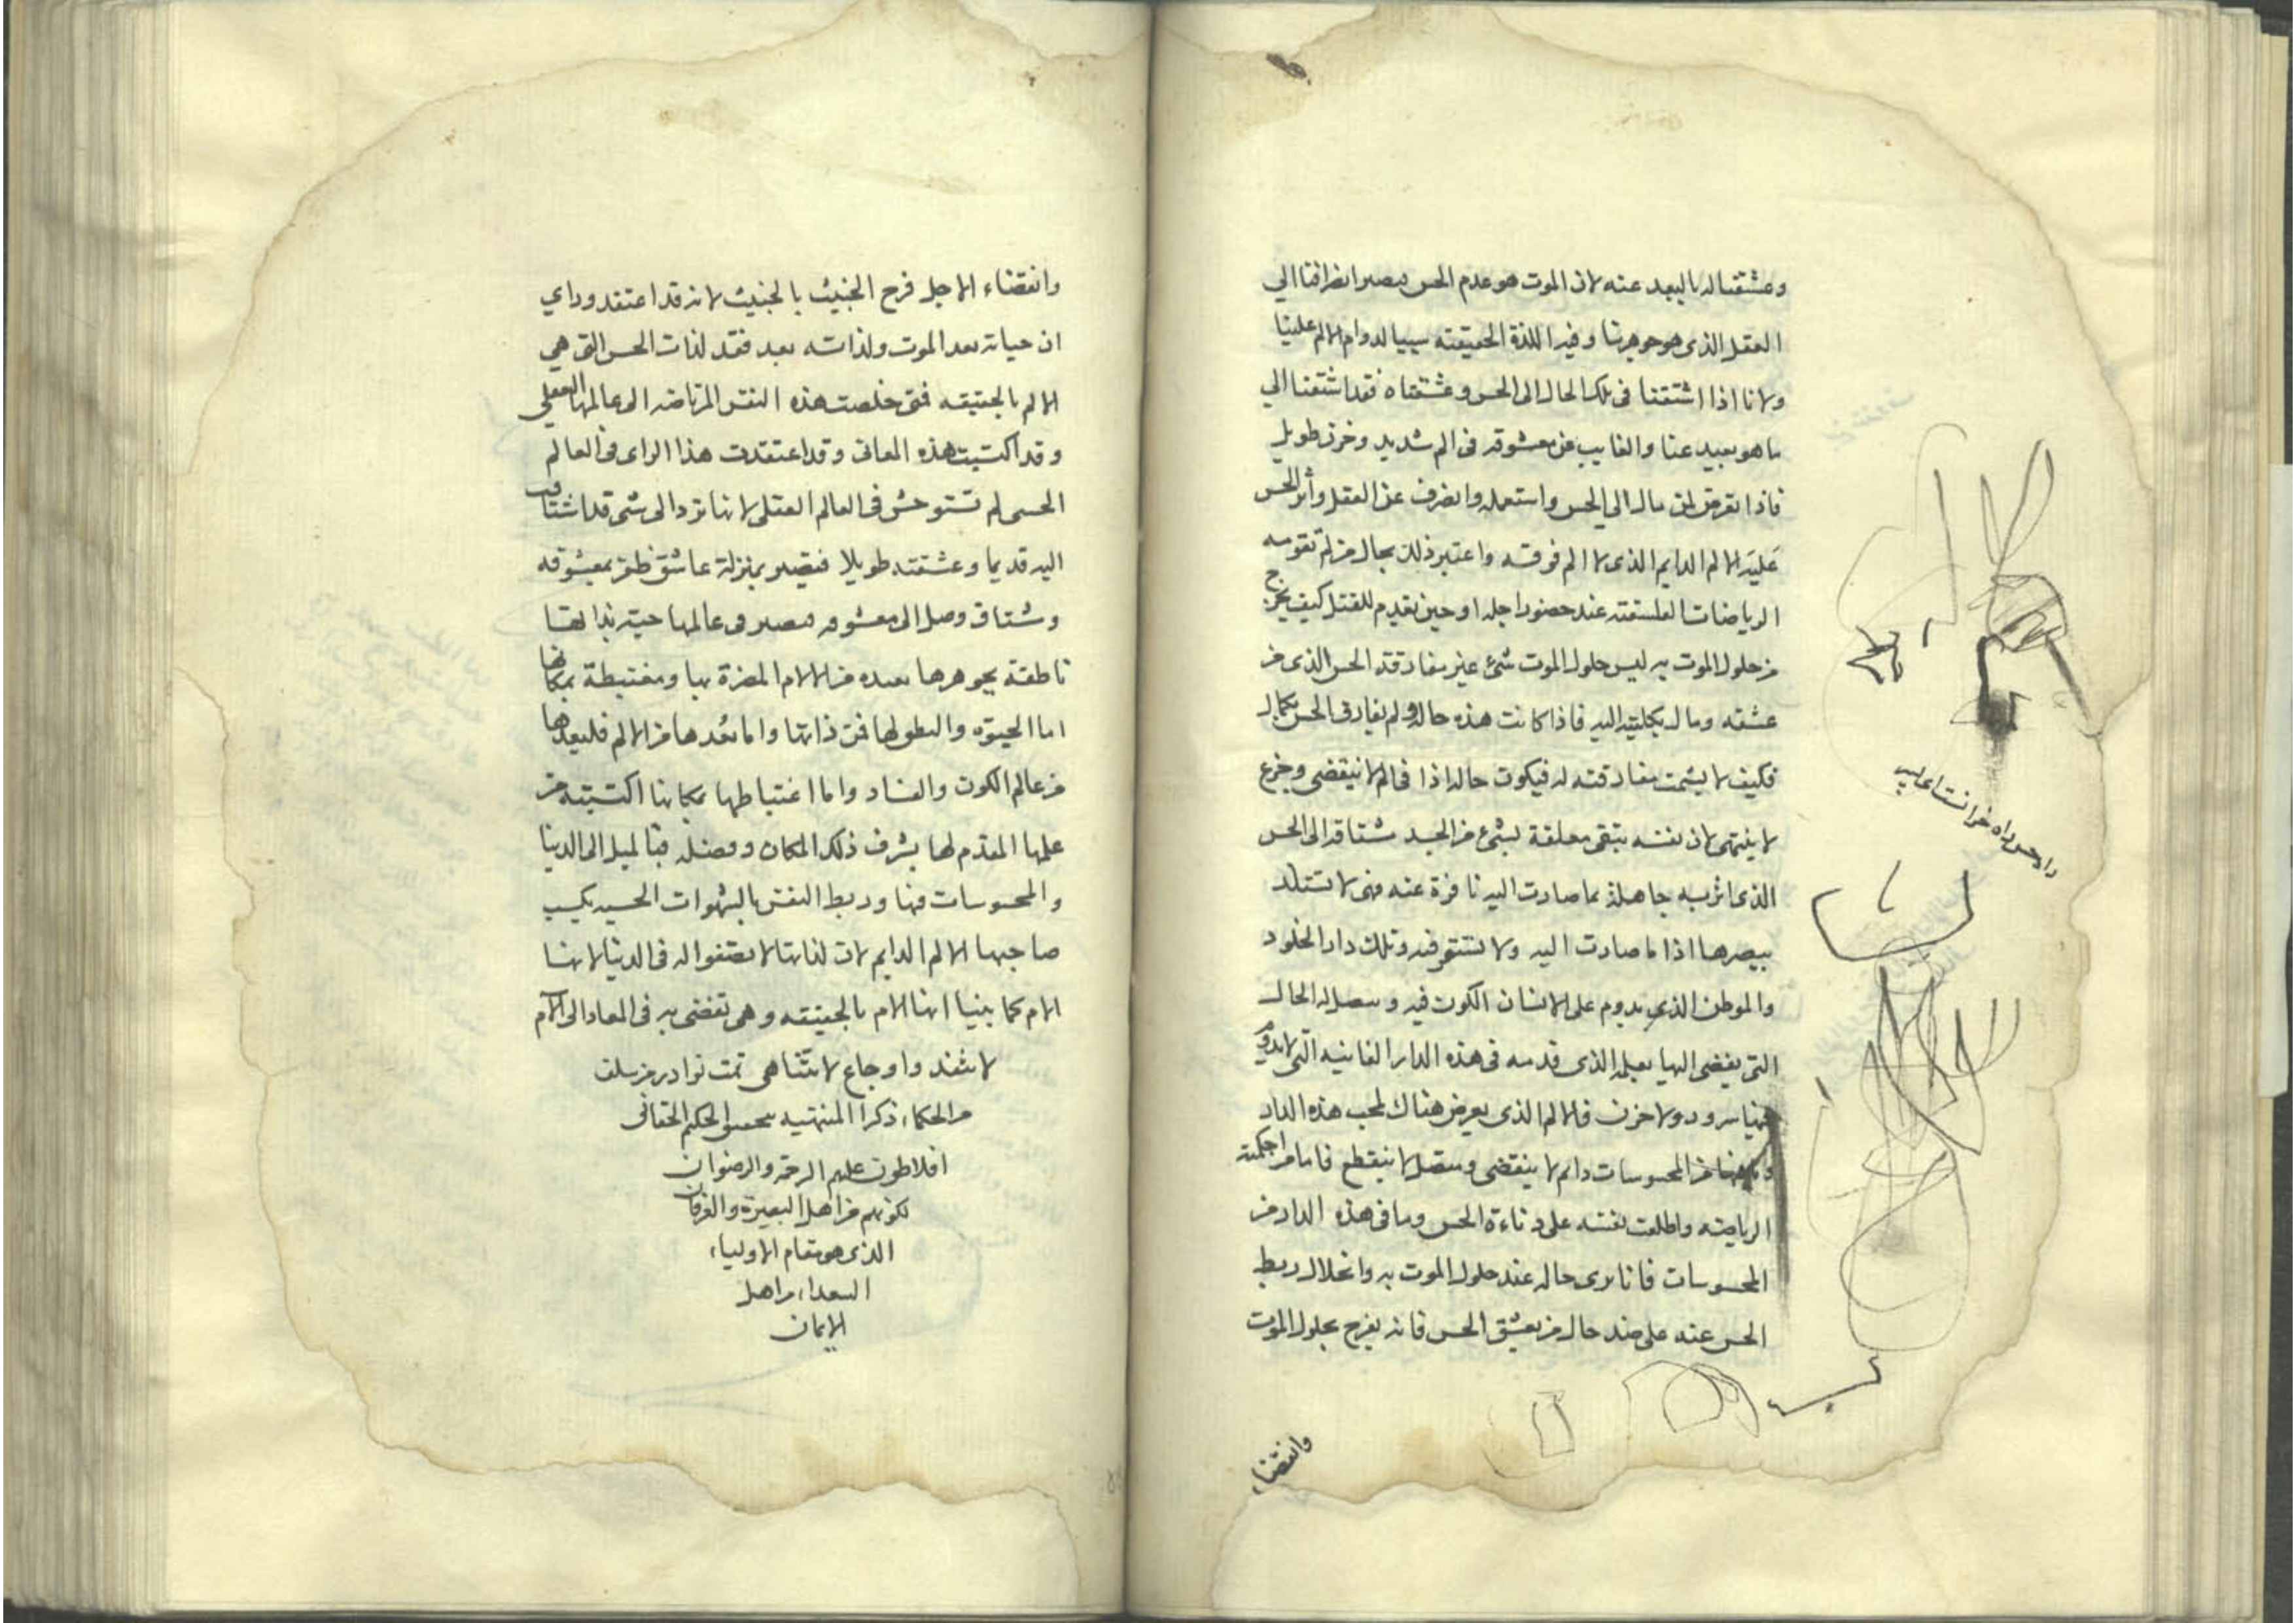 وعشقنا له بالبعد عنه لان الموت هو عدم الحس فيصير انصرافنا الي
العقل الذى هو جوهرنا وفيه اللذة الحقيقته سببا لدوام الالم علينا
ولانا اذا اشتقنا فى تلك الحال الى الحس وعشقناه فقد اشتقنا الي
ما هو بعيد عنا والغايب عن معشوقه فى الم شديد وحزن طويل
فاذا تعرض لمن مال الي الحس واستعمله وانصرف عن العقل وأثر الحس
عَليَه الالم الدايم الذى لا الم فوقه واعتبر ذلك بحال من لم تقومه
الرياضات الفلسفته عند حضور اجله او حين تقدم للقتل كيف يخرج
من حلول الموت به ليس حلول الموت شئ غير مفارقته الحس الذى من
عشقه ومال بكليته اليه فاذا كانت هذه حاله ولم يفارق الحس بكمال
فكيف لا يشمت مفارقته له فيكون حاله اذا فى الم لا ينقضى وجزع
لا ينتهى لان نفسه تبقى معلقة بشئ من الجسد مشتاقه الى الحس
الذى اثر به جاهلة بما صادت اليه نافرة عنه فهى لا تستلذ
ببصرها اذا ما صادت اليه ولا تستقر فيه وتلك دار الخلود
والموطن الذى يدوم على الانسان الكون فيه وتتصل له الحال
التى يفضى اليها بعمله الذى قدمه فى هذه الدار الفانيه التى لا يدوم
فيها سرور ولا حزن فالالم الذى يعرض هناك لمحب هذه الدار
من المحسوسات دائم لا ينقضى ومتصل لا ينقطع فاما من احكمته
الرياضه واطلعت نفسه على دناءة الحس وما فى هذه الدار من
المحسوسات فانا نرى حاله عند حلول الموت به وانحلال ربط
الحس عنه على ضد حال من يعشق الحس فانه يفرح بحلول الموت
وانقضاء
وانقضاء الاجل فرح الخبيث بالخبيث لانه قد اعتقد وراي
ان حياته بعد الموت ولذاته بعد فقد لذات الحس التى هي
الالم بالحقيقه فمتى خلصت هذه النفس المرتاضه الى عالمها العقلي
وقد اكتسبت هذه المعانى وقد اعتقدت هذا الراى فى العالم
الحسى لم تستوحش فى العالم العقلى لانها ترد الى شى قد اشتاقت
اليه قديما وعشقته طويلا فتصير بمنزلة عاشق ظفر بمعشوقه
ومشتاق وصل الى معشوقه فتصير فى عالمها حيته بذاتها
ناطقة بجوهرها بعيده من الالام المضرة بها ومغتبطة بمكانها
اما الحيوة والنطق لها فمن ذاتها واما بُعدها من الالم فلبعدها
من عالم الكون والفساد واما اغتباطها بمكانها اكتسبته من
علمها المقدم لها بشرف ذلك المكان وفضله فالميل الى الدنيا
والمحسوسات فيها وربط النفس بالشهوات الحسيه يكسب
صاحبها الالم الدايم لان لذاتها لا تصفوا له فى الدنيا لانها
الام كما بينا انها الام بالحقيقه وهى تفضى به فى المعاد الى الام
لا تنفد واوجاع لا تتناهى تمت نوادر من سلف
من الحكماء ذكرا المنتهيه الحكيم الحقانى
افلاطون عليهم الرحمة والرضوان
لكونهم من اهل البصيرة والعرفان
الذى هو مقام الاولياء
السعداء من اهل
الايمان